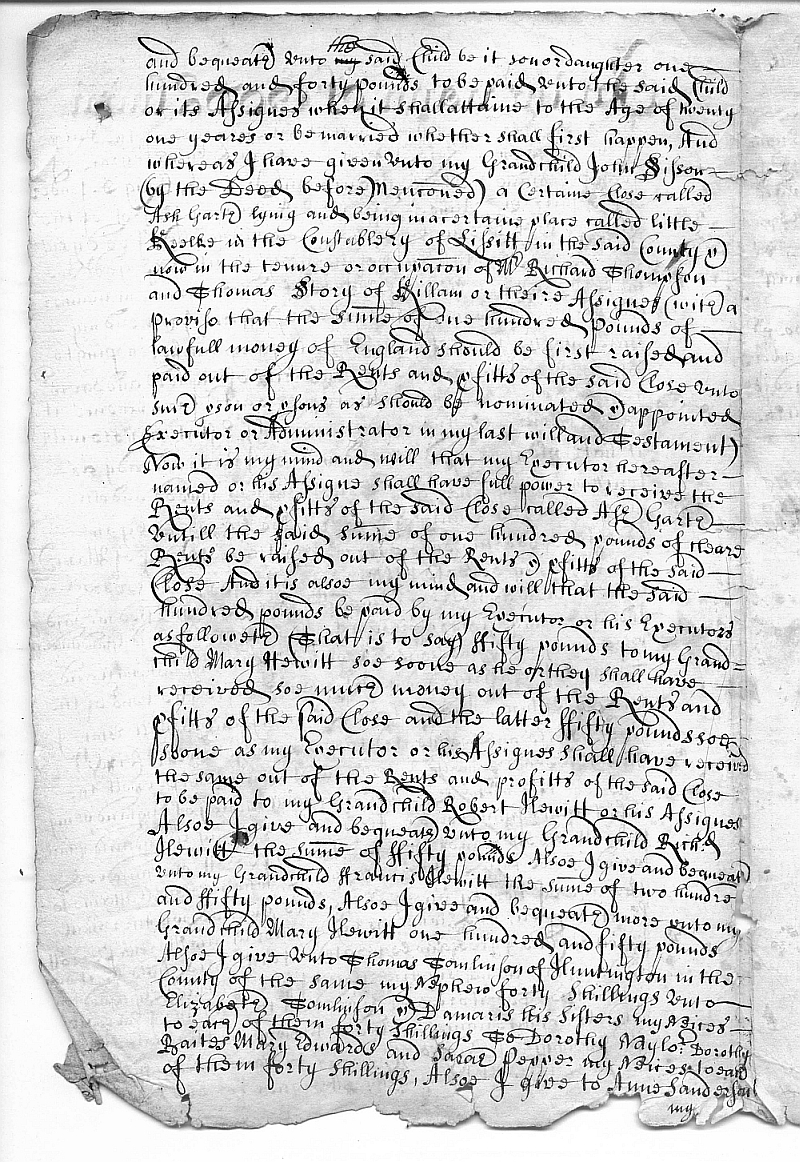 and bequeath vnto the said Child be it son or daughter one
hundred and forty pounds to be paid vnto the said Child
or its Assignes when it shall attaine to the Age of twenty
one yeares or be married whether shall first happen, And
whereas I have given vnto my Grandchild John Sisson
(by the Deed before Menconed) a Certaine Close called
Ash Garth lying and being in a certaine place called little
Keelke in the Constablery of Lissitt in the said County &
now in the tenure or occupacon of Mr Richard Thompson
and Thomas Story of Killam or theire Assignes (with a
proviso that the sume of one hundred Pounds of
lawfull money of England should be first raised and
paid out of the Rents and pfitts of the said Close vnto
such pson or psons as should be nominated & appointed
Executor or Administrator in my last will and Testament)
Now it is my mind and will that my Executor hereafter
named or his Assigne shall have full power to receive the
Rents and pfitts of the said Close called Ash Garth
vntill the said sume of one hundred pounds of cleare
Rents be raised out of the Rents & pfitts of the said
Close And it is alsoe my mind and will that the said
hundred pounds be paid by my Executor or his Executors
as followeth (That is to say) ffifty pounds to my Grand=
child Mary Hewitt soe soone as he or they shall have
received soe much money out of the Rents and
pfitts of the said Close and the latter ffifty pounds soe
soone as my Executor or his Assignes shall have received
the same out of the Rents and profitts of the said Close
to be paid to my Grandchild Robert Hewitt or his Assignes
Alsoe I give and bequeath vnto my Grandchild Richd
Hewitt the sume of ffifty pounds Alsoe I give and bequeath
vnto my Grandchild ffrancis Hewitt the sume of two hundred
and ffifty pounds, Alsoe I give and bequeath more vnto my
Grandchild Mary Hewitt one hundred and fifty pounds
Alsoe I give vnto Thomas Tomlinson of Hunington in the
County of the same my Nephew forty Shillings vnto
Elizabeth Tomlinson & Damaris his Sisters my Neices
to each of them forty Shillings To Dorothy Naylor Dorothy
Baites Mary Edwards and Sarah Pepper my Neices to each
of them forty Shillings, Alsoe I give to Anne Sanderson
my